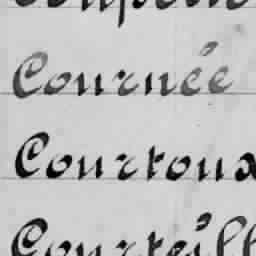 Cournée
Courtoux
Courteill